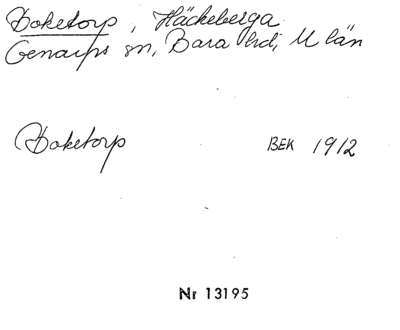 Doketorp, Häckeberga
Genarps sn, Bara hd, M län
Doketorp BEK 1912
Nr 13195